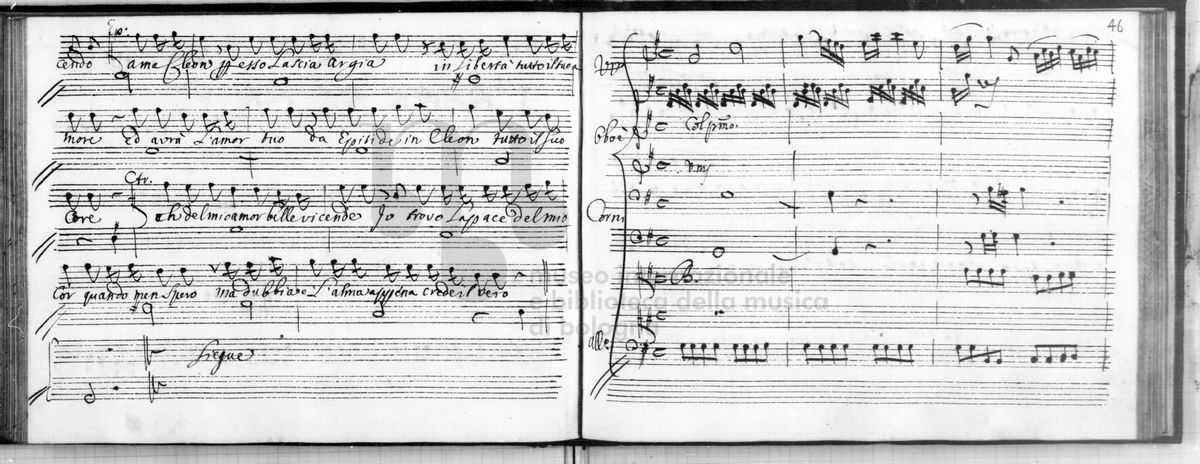 Ep.
cendo ama Cleon presso Lascia Argia in Libertà tutto il suo a
more Ed avrà L'amor tuo da Epitide in Cleon tutto il suo
Core Ch. del mio amor belle vicende Jo trovo La pace del mio
Cor quando men Spero ma dubbiav L'alma appena crede il vero
Siegue
46
Oboè Col pmo.
Corni
B.
alle
museo internazionale
e biblioteca della musica
di bologna